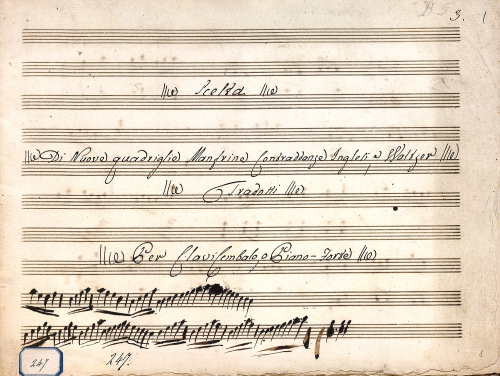 3. 1
Scelta
Di Nuove quadriglie Manfrine Contraddanze Inglesi, e Waltzer
Tradotti
Per Clavicembalo, o Piano-Forte
247 247.